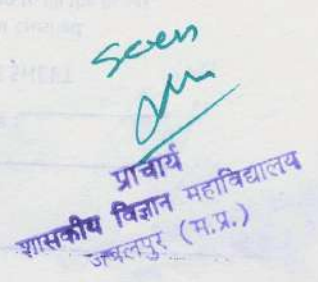 seen
प्राचार्य
शासकीय विज्ञान महाविद्यालय
जबलपुर (म.प्र.)